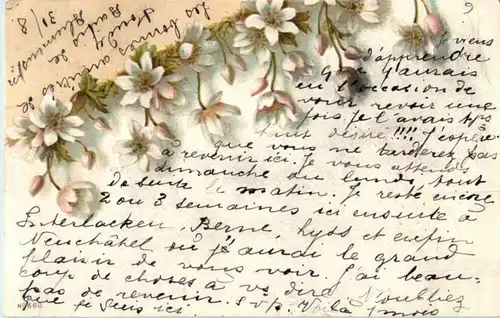 Je viens
d'apprendre
que j'aurais
eu l'occasion de
vous revoir une
fois je l'avais tps
tant désiré !!!! J'espère
que vous ne tarderez pas
à revenir ici. Je vous attends
dimanche ou lundi, tout
de suite le matin. Je reste encore
2 ou 3 semaines ici ensuite à
Interlacken, Berne, Lyss et enfin
Neuchâtel où j'aurai le grand
plaisir de vous voir. J'ai beau-
coup de choses à vs dire N'oubliez
pas de revenir. S.v.p. Voilà 1 mois
que je suis ici.
Les bonnes amitiés de
31/8
No 660